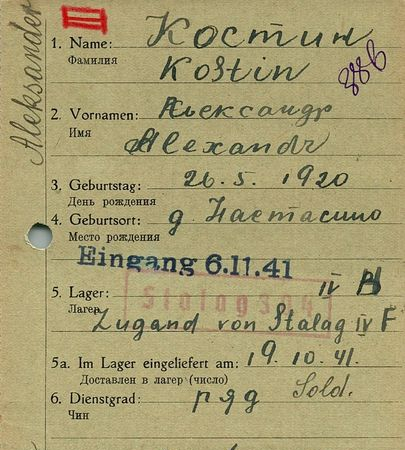 Aleksander
III
1. Name: Костин
Фамилия Kostin
886
2. Vornamen: Александр
Имя Alexandr
3. Geburtstag: 26. 5. 1920
День рождения
4. Geburtsort: д. Настасино
Место рождения
Eingang 6.11.41
5. Lager: IV B
Stalag 304
Лагерь
Zugang von Stalag IV F
5a. Im Lager eingeliefert am: 19. 10. 41.
Доставлен в лагер (число)
6. Dienstgrad: ряд Sold.
Чин